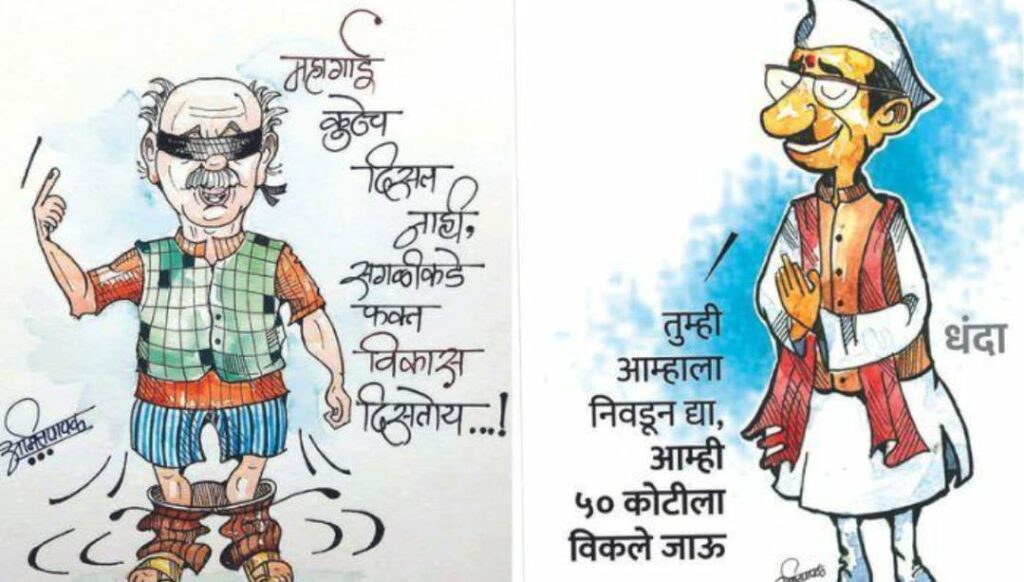 महागाई
कुठेच
दिसत
नाही,
सगळीकडे
फक्त
विकास
दिसतोय...!
तुम्ही
आम्हाला
निवडून द्या,
आम्ही
५० कोटीला
विकले जाऊ
धंदा